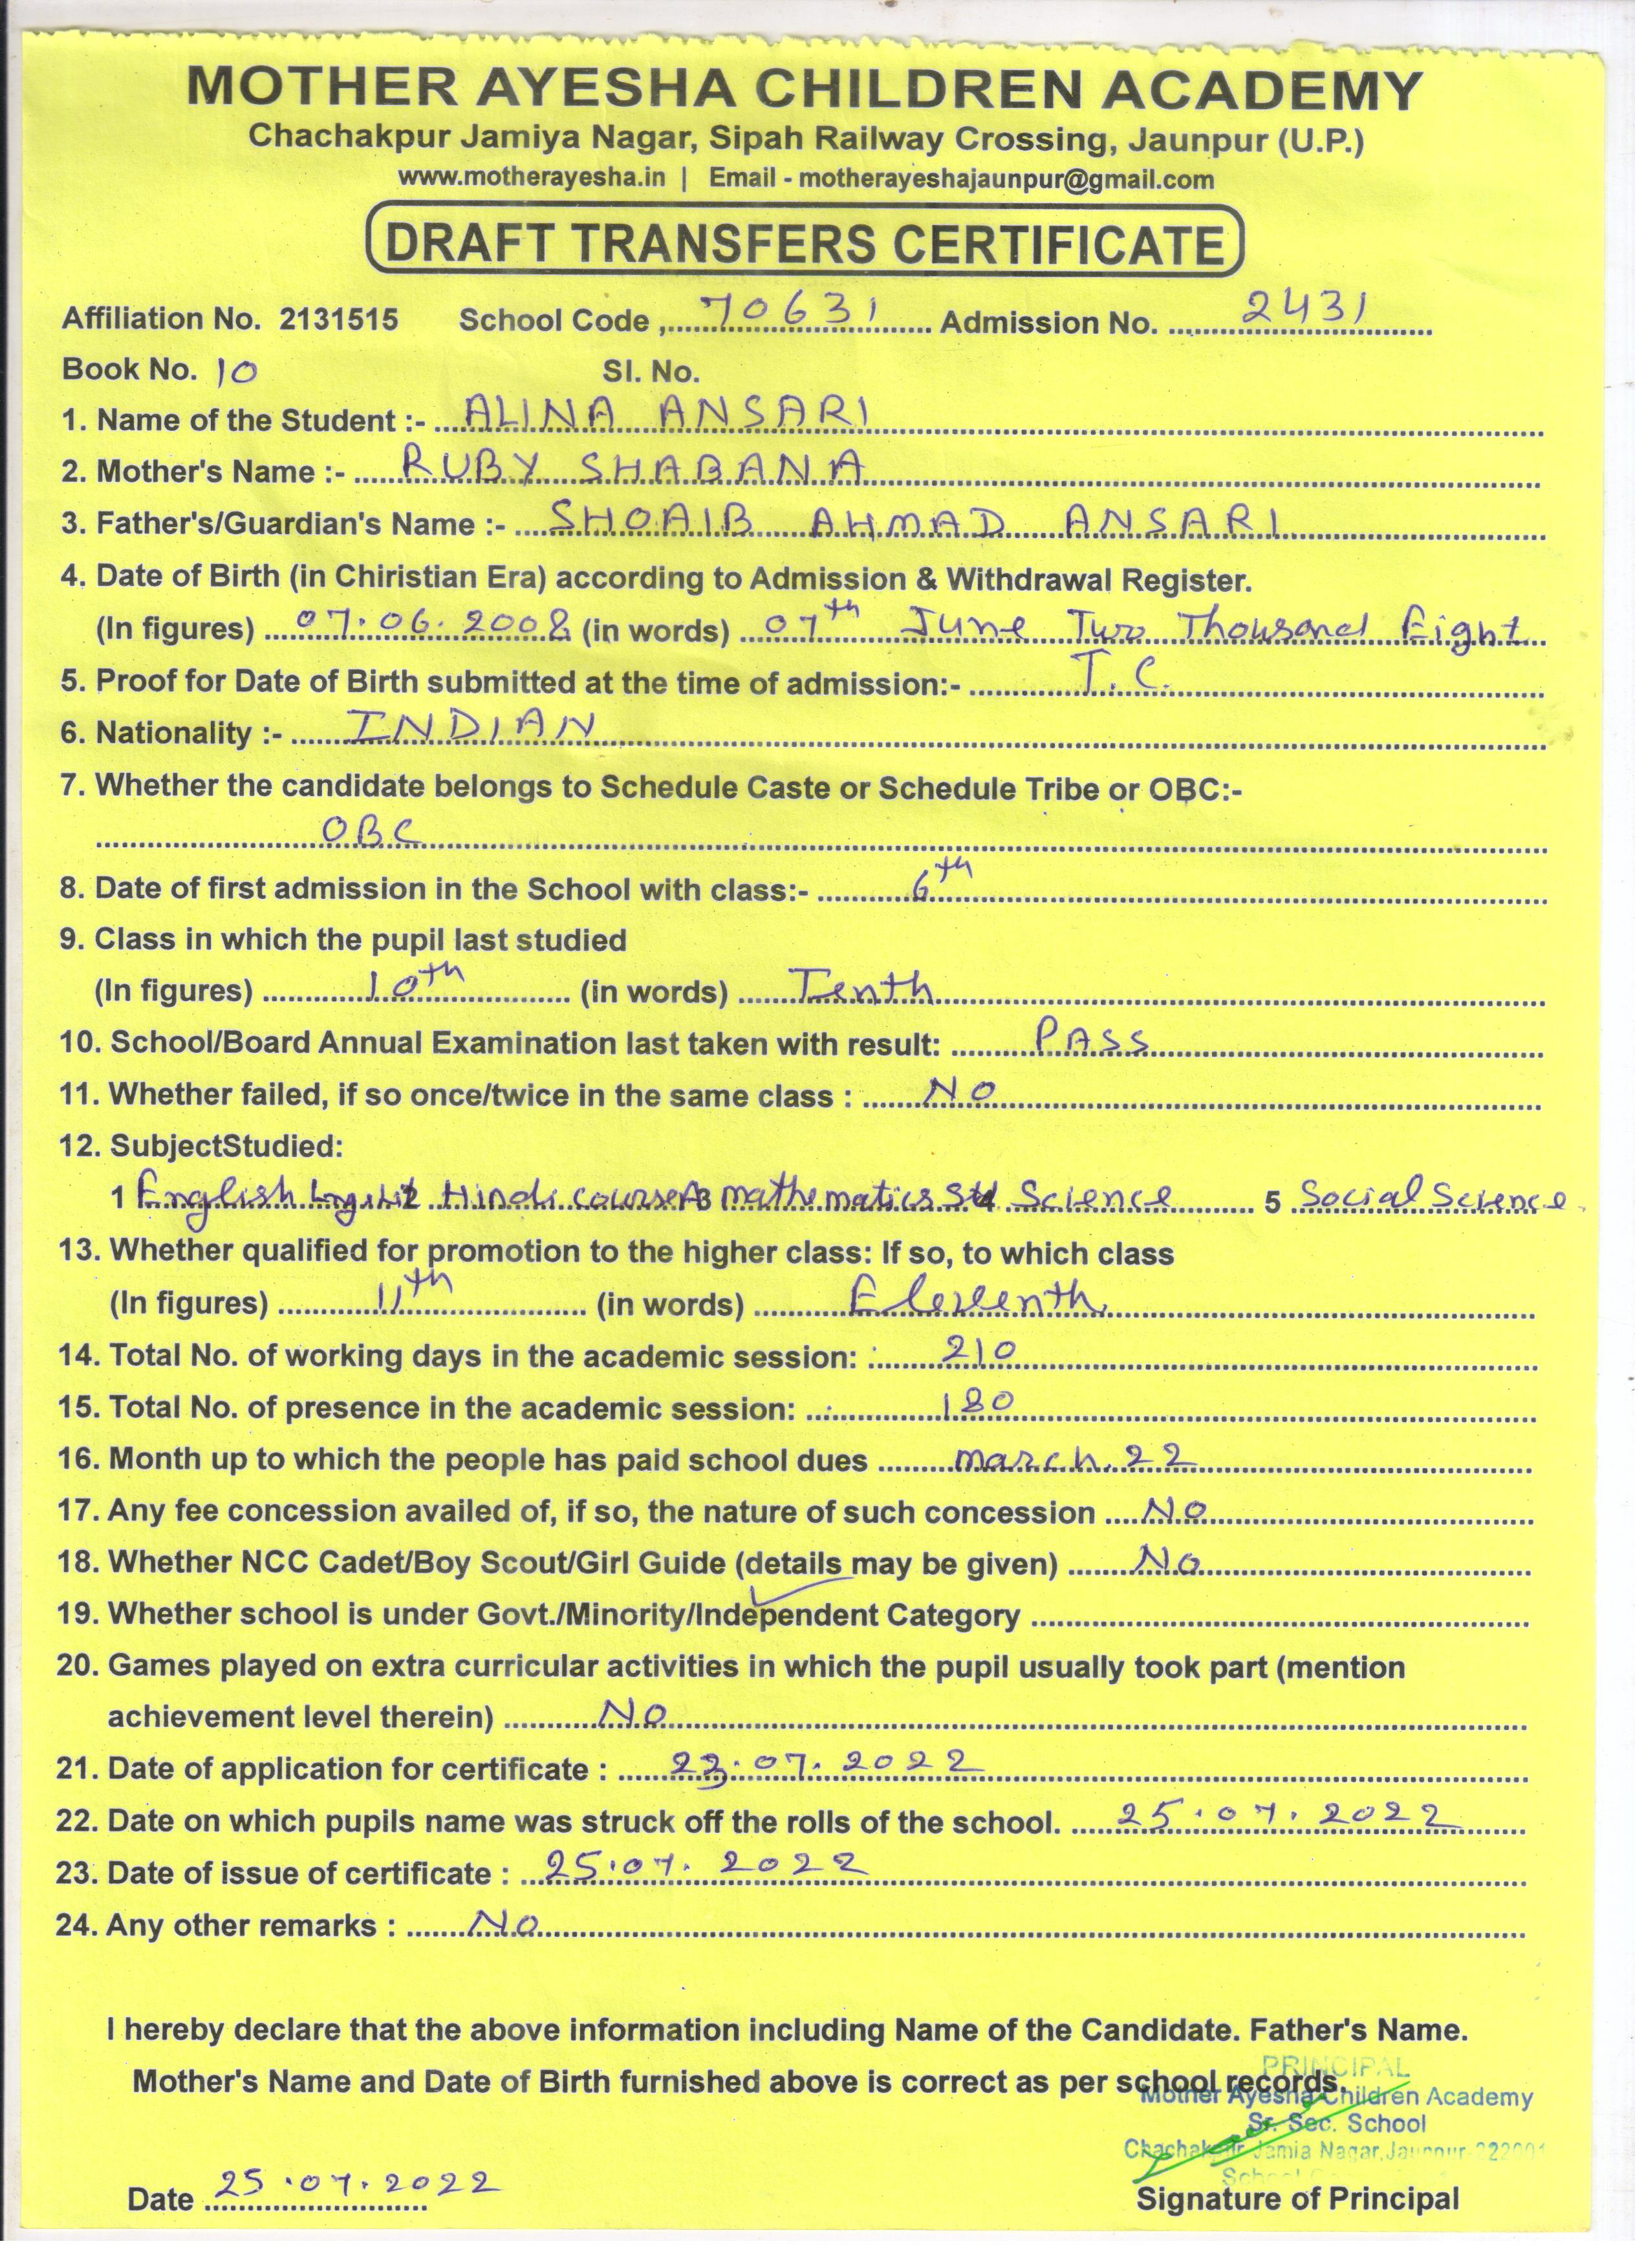 MOTHER AYESHA CHILDREN ACADEMY
Chachakpur Jamiya Nagar, Sipah Railway Crossing, Jaunpur (U.P.)
www.motherayesha.in | Email - motherayeshajaunpur@gmail.com
DRAFT TRANSFERS CERTIFICATE
Affiliation No. 2131515 School Code ,....70631.... Admission No. ....2431....
Book No. 10 Sl. No.
1. Name of the Student :- ....ALINA ANSARI....
2. Mother's Name :- ....RUBY SHABANA....
3. Father's/Guardian's Name :- ....SHOAIB AHMAD ANSARI....
4. Date of Birth (in Chiristian Era) according to Admission & Withdrawal Register.
(In figures) ....07.06.2008 (in words) ....07th June Two Thousand Eight..
5. Proof for Date of Birth submitted at the time of admission:- ....T.C.....
6. Nationality :- ....INDIAN....
7. Whether the candidate belongs to Schedule Caste or Schedule Tribe or OBC:-
....OBC....
8. Date of first admission in the School with class:- ....6th....
9. Class in which the pupil last studied
(In figures) ....10th.... (in words) ....Tenth....
10. School/Board Annual Examination last taken with result: ....PASS....
11. Whether failed, if so once/twice in the same class : ....NO....
12. SubjectStudied:
1 English Lng.&Lit 2 Hindi course A 3 mathematics Std 4 Science .... 5 Social Science
13. Whether qualified for promotion to the higher class: If so, to which class
(In figures) ....11th.... (in words) ....Eleventh....
14. Total No. of working days in the academic session: ....210....
15. Total No. of presence in the academic session: ....180....
16. Month up to which the people has paid school dues ....march.22....
17. Any fee concession availed of, if so, the nature of such concession ....No....
18. Whether NCC Cadet/Boy Scout/Girl Guide (details may be given) ....No....
19. Whether school is under Govt./Minority/Independent Category ....
20. Games played on extra curricular activities in which the pupil usually took part (mention
achievement level therein) ....No....
21. Date of application for certificate : ....23.07.2022....
22. Date on which pupils name was struck off the rolls of the school. ....25.07.2022....
23. Date of issue of certificate : ....25.07.2022....
24. Any other remarks : ....No....
I hereby declare that the above information including Name of the Candidate. Father's Name.
Mother's Name and Date of Birth furnished above is correct as per school records.
PRINCIPAL
Mother Ayesha Children Academy
Sr. Sec. School
Chachakpur Jamia Nagar, Jaunpur-222001
School
Date 25.07.2022
Signature of Principal